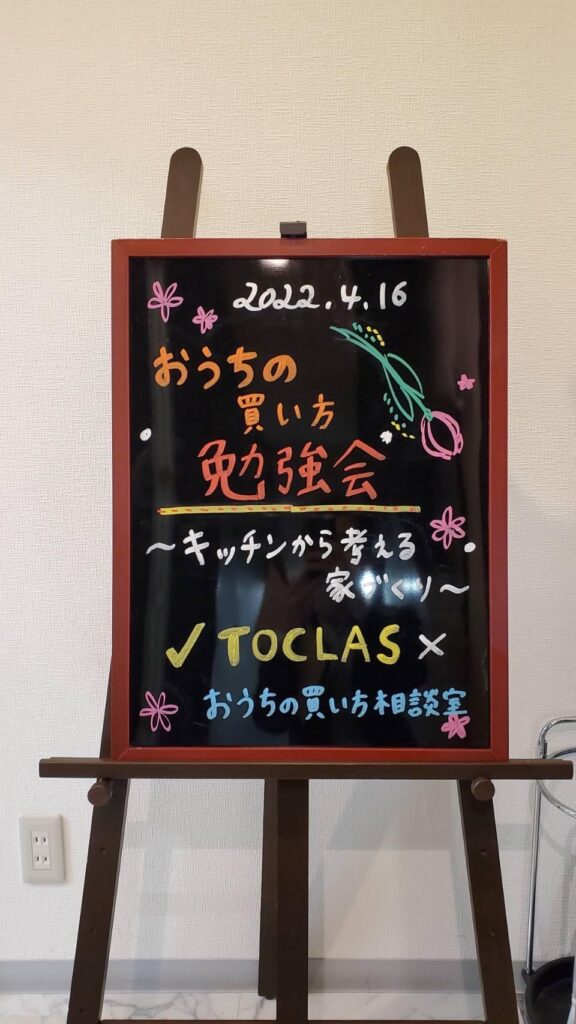 2022.4.16
おうちの
買い方
勉強会
～キッチンから考える
家づくり～
✓TOCLAS×
おうちの買い方相談室